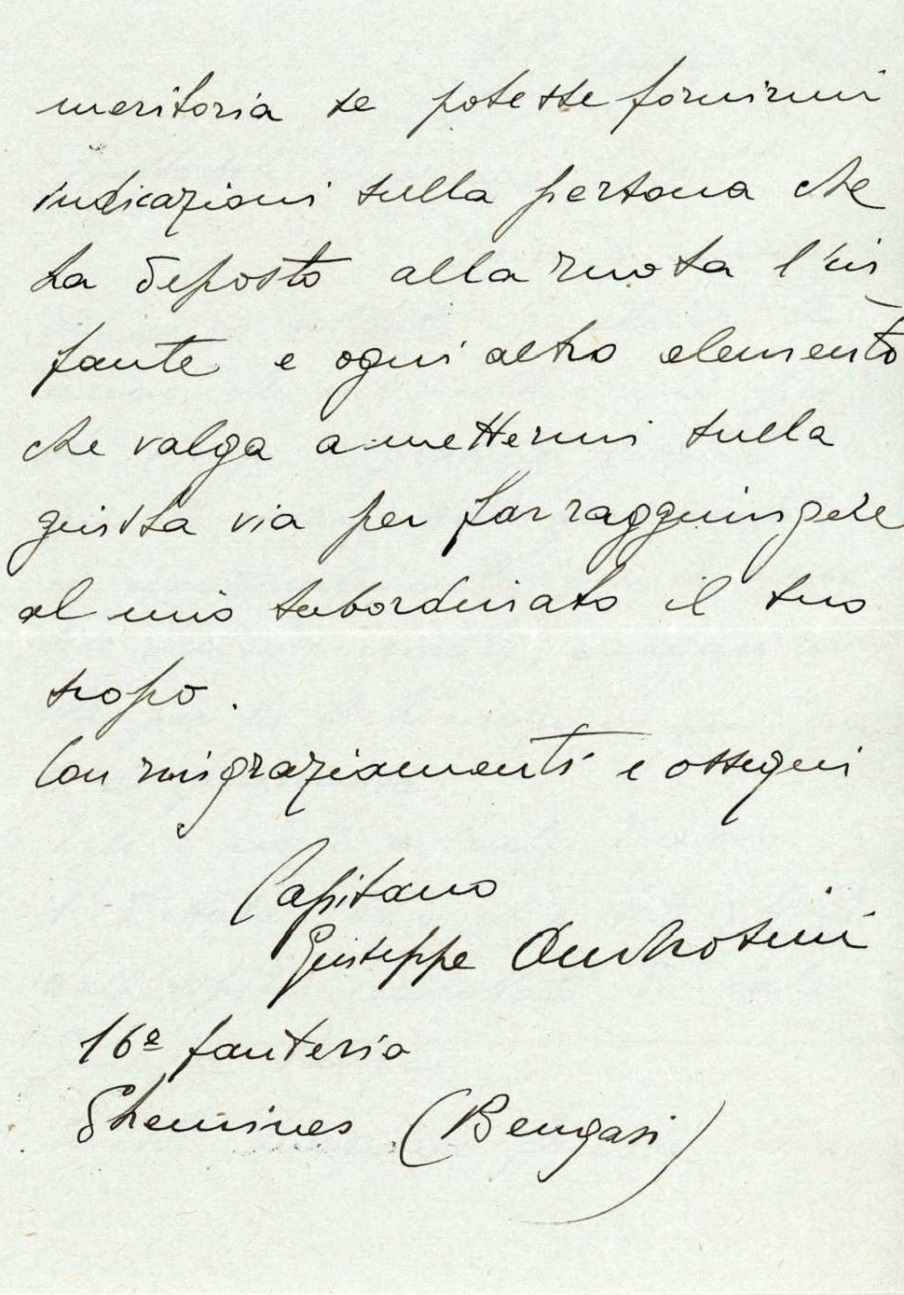 meritoria se potesse fornirmi
indicazioni sulla persona che
ha deposto alla ruota l'in
fante e ogni altro elemento
che valga a mettermi sulla
giusta via per far raggiungere
al mio subordinato il suo
scopo.
Con ringraziamenti e ossequi
Capitano
Giuseppe Ambrosini
16º fanteria
Ghemines (Bengasi)